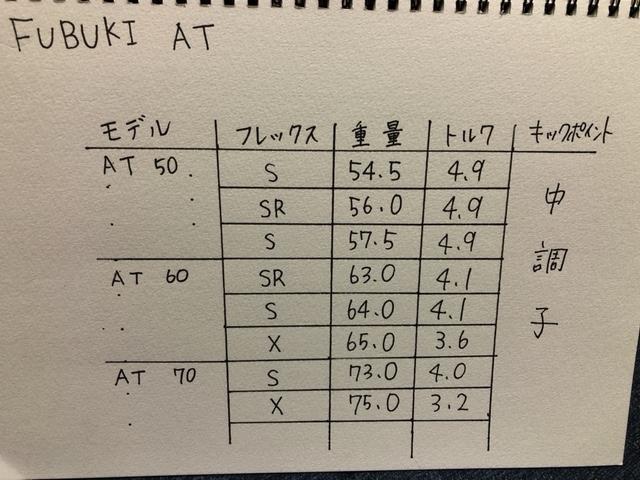 FUBUKI AT
モデル フレックス 重量 トルク キックポイント
AT 50 S 54.5 4.9 中調子
SR 56.0 4.9
S 57.5 4.9
AT 60 SR 63.0 4.1
S 64.0 4.1
X 65.0 3.6
AT 70 S 73.0 4.0
X 75.0 3.2